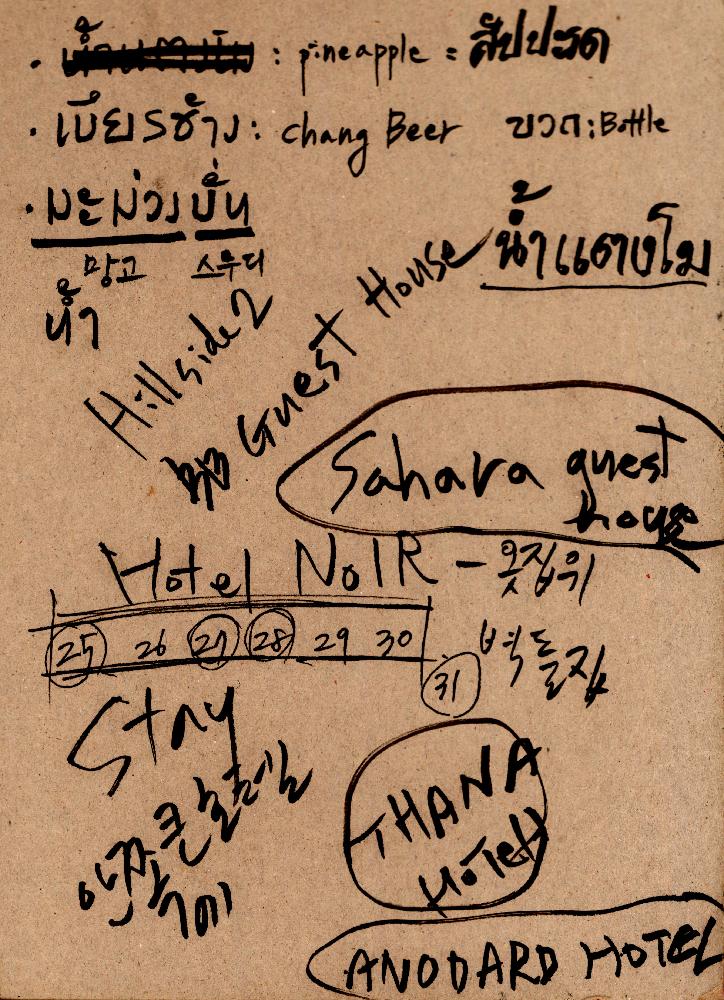 : pineapple = สัปปะรด
· เบียร์ช้าง : chang Beer ขวด : Bottle
· มะม่วงปั่น
망고 스무디
น้ำ
น้ำแตงโม
Hillside 2
Guest House
Sahara guest house
Hotel NoIR - 옷집위
25 26 27 28 29 30
31
벽돌집
Stay
THANA
HOTEL
ANODARD HOTEL